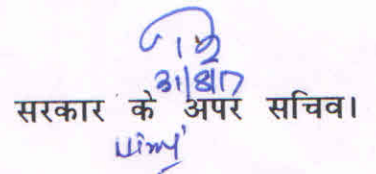 31/8/17
सरकार के अपर सचिव।